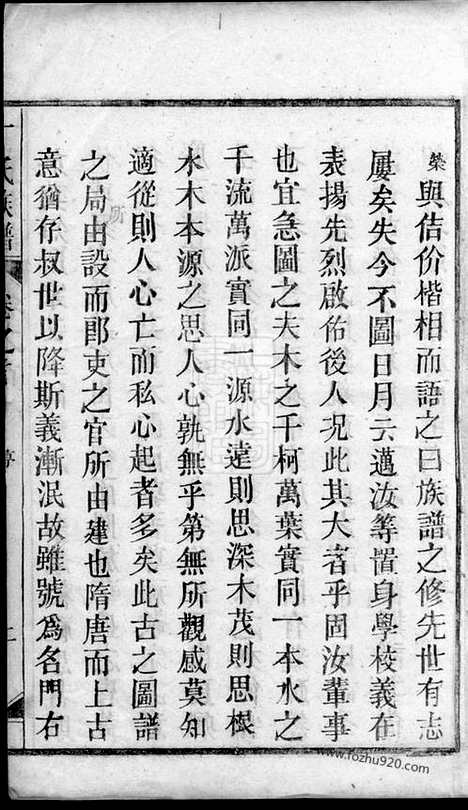 榮與佶价楷相而語之曰族譜之修先世有志
屢矣失今不圖日月云邁汝等置身學校義在
表揚先烈啟佑後人况此其大者乎固汝輩事
也宜急圖之夫木之千柯萬葉實同一本水之
千流萬派實同一源水達則思深木茂則思根
水木本源之思人心孰無乎第無所觀感莫知
適從則人心亡而私心起者多矣此古之圖譜
之局由設而郎吏之官所由建也隋唐而上古
意猶存叔世以降斯義漸泯故雖號為名門右
氏族譜
www.fozhu920.com